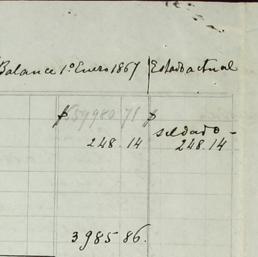 Balance 1º Enero 1867 Estado actual
$ 59980.71 $
saldado -
248.14 248.14
3.985 86.